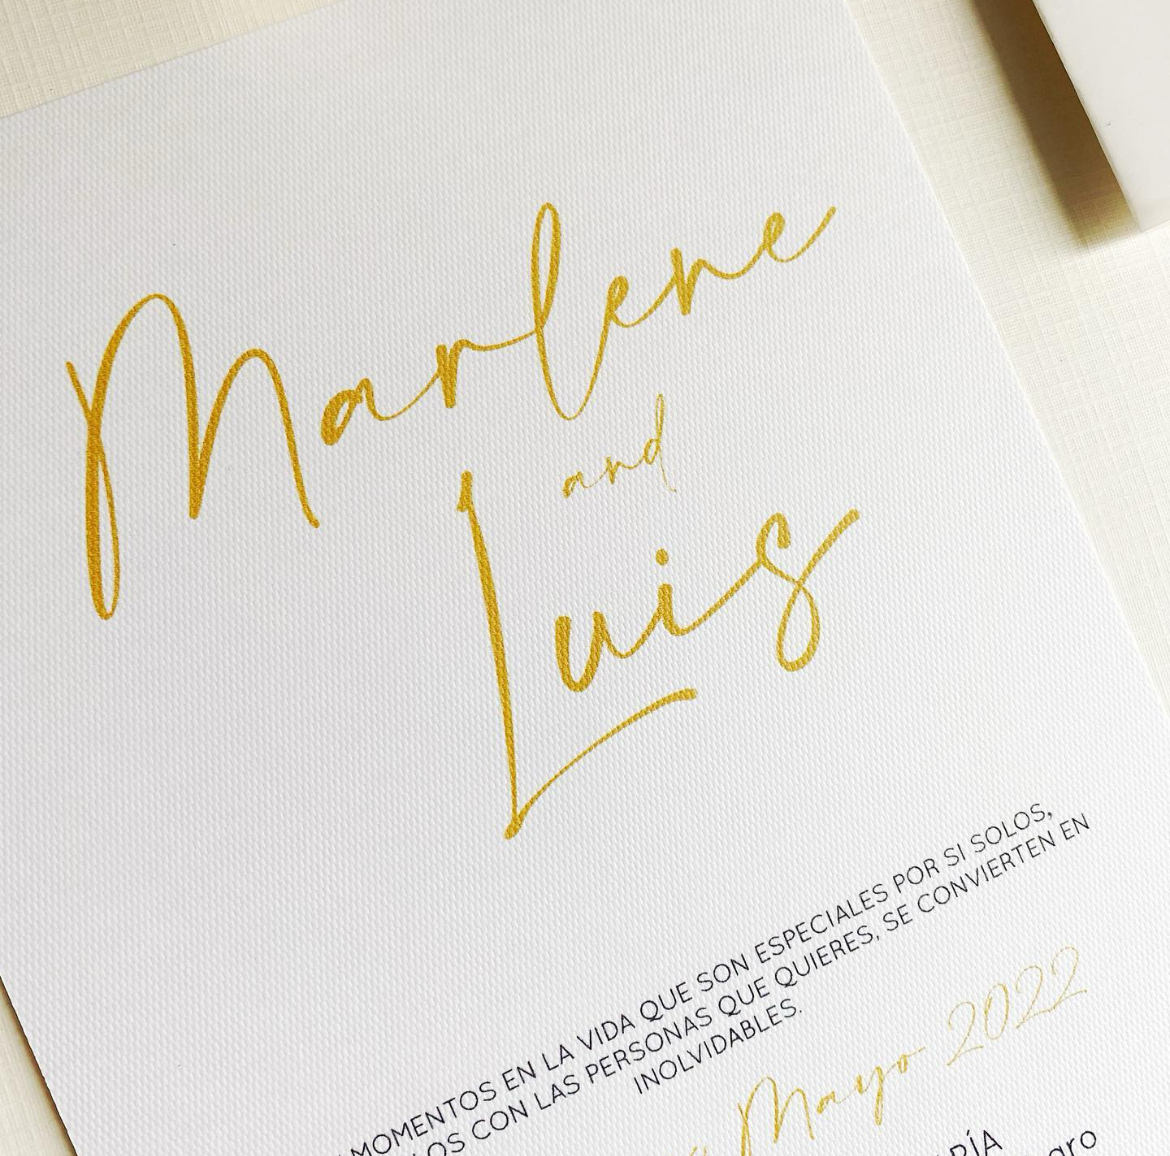 Marlene
and
Luis
MOMENTOS EN LA VIDA QUE SON ESPECIALES POR SI SOLOS,
CON LAS PERSONAS QUE QUIERES, SE CONVIERTEN EN
INOLVIDABLES.
Mayo 2022